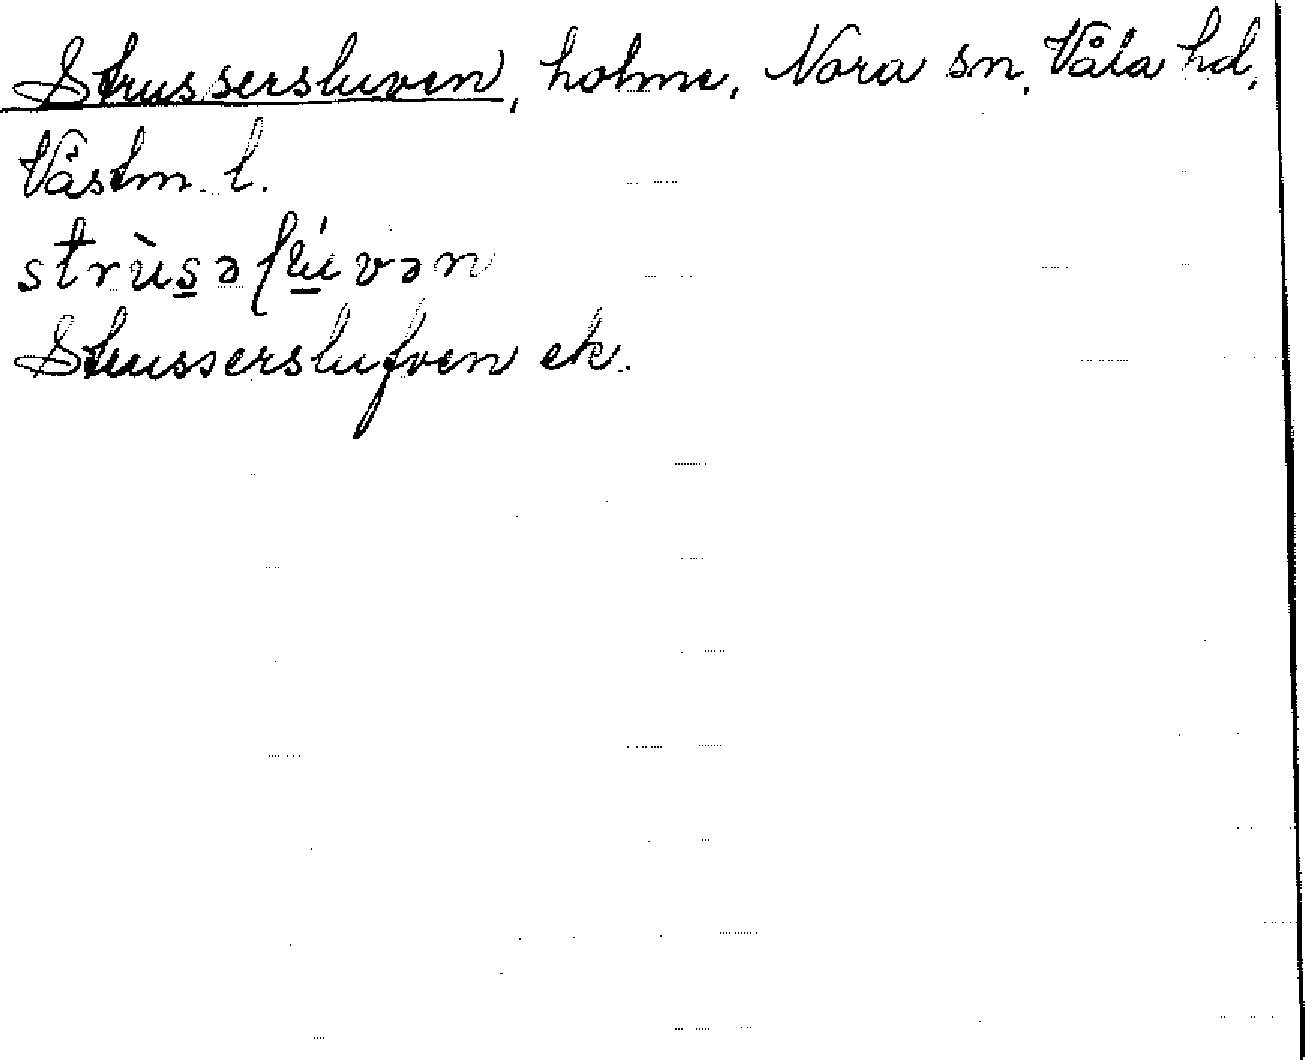 Strussersluven, holme, Nora sn, Våla hd,
Västm. l.
strùs̲əʃl̲ú̲vən
Strusserslufven ek.